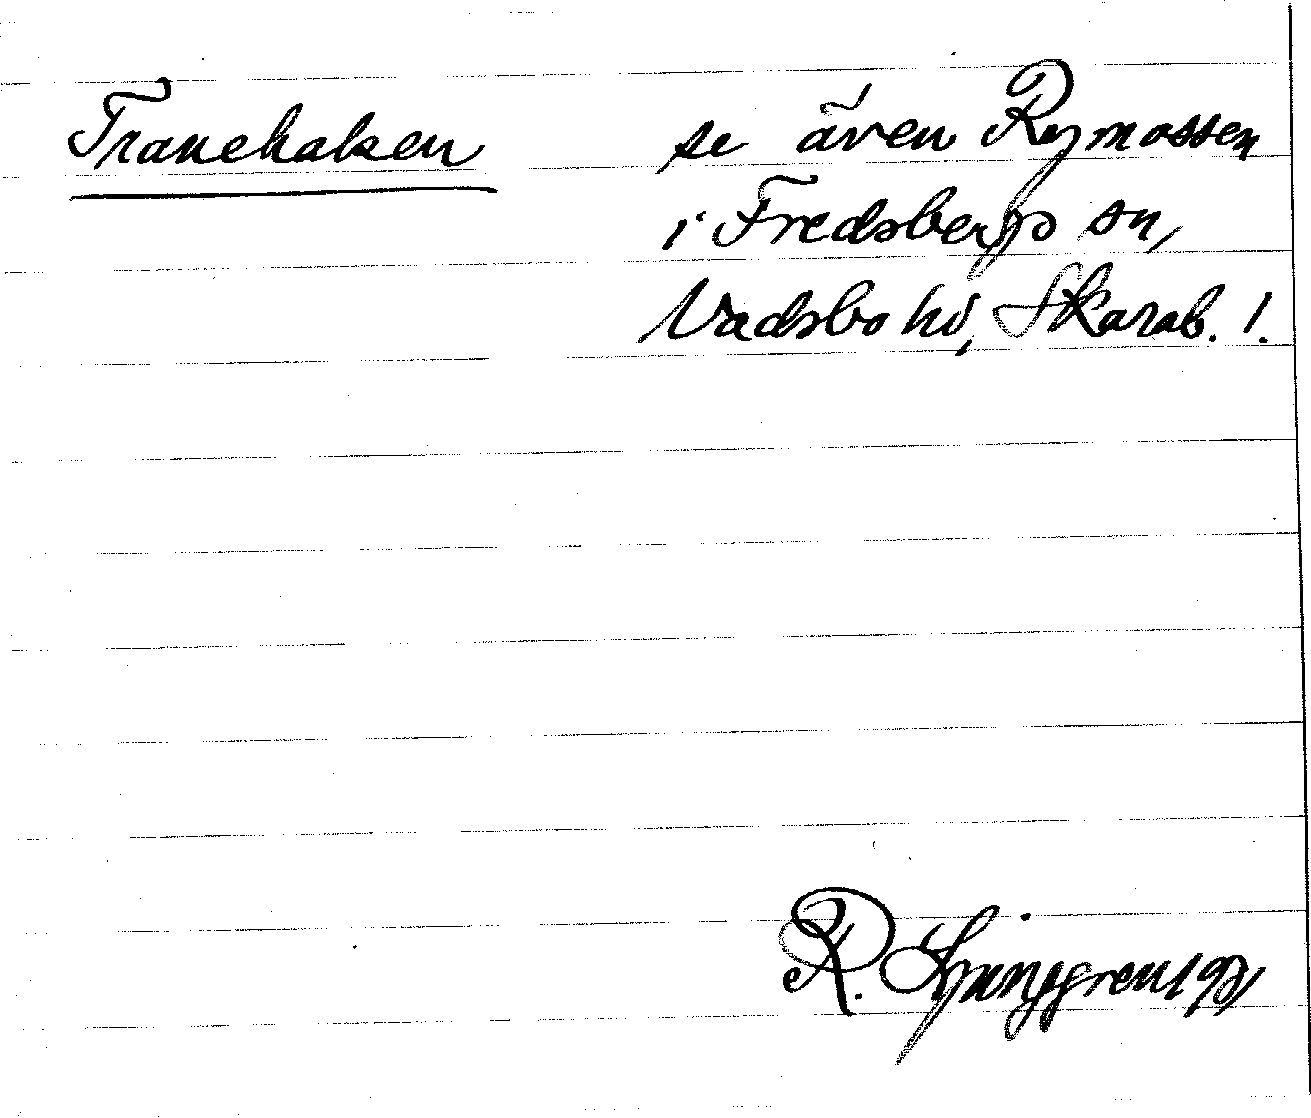 Tranehaken se även Rymossen
i Fredsbergs sn,
Vadsbo hd, Skarab. l.
R. Ljunggren